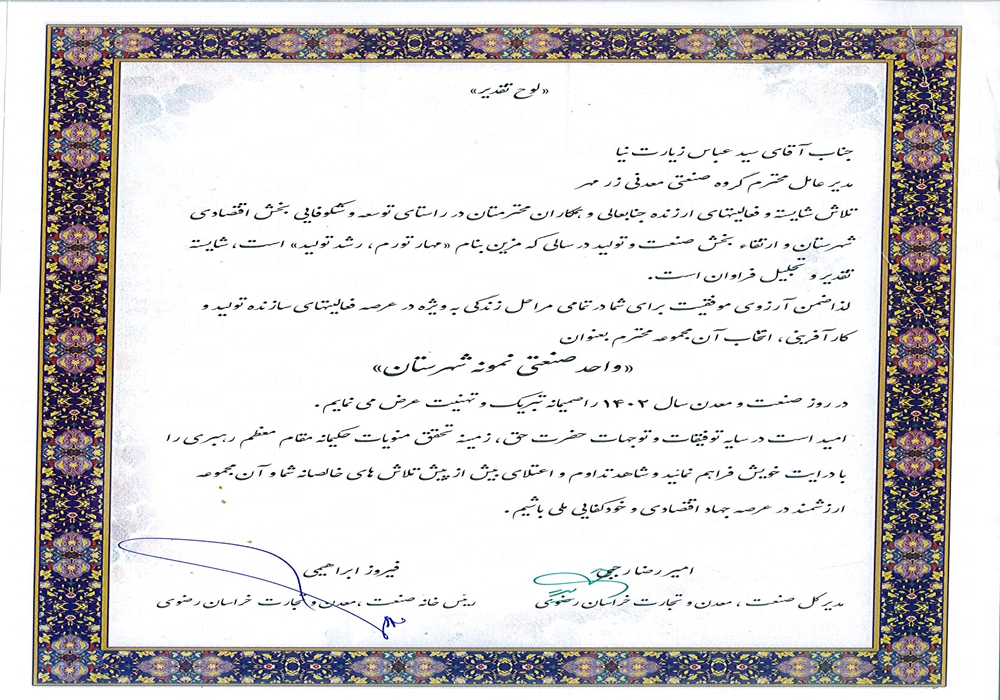 «لوح تقدیر»
جناب آقای سید عباس زیارت نیا
مدیر عامل محترم گروه صنعتی معدنی زر مهر
تلاش شایسته و فعالیتهای ارزنده جنابعالی و همکاران محترمتان در راستای توسعه و شکوفایی بخش اقتصادی
شهرستان و ارتقاء بخش صنعت و تولید در سالی که مزین بنام «مهار تورم، رشد تولید» است، شایسته
تقدیر و تجلیل فراوان است.
لذا ضمن آرزوی موفقیت برای شما در تمامی مراحل زندگی به ویژه در عرصه فعالیتهای سازنده تولید و
کارآفرینی، انتخاب آن مجموعه محترم بعنوان
«واحد صنعتی نمونه شهرستان»
در روز صنعت و معدن سال ۱۴۰۲ را صمیمانه تبریک و تهنیت عرض می نمایم.
امید است در سایه توفیقات و توجهات حضرت حق، زمینه تحقق منویات حکیمانه مقام معظم رهبری را
با درایت خویش فراهم نمائید و شاهد تداوم و اعتلای بیش از پیش تلاش های خالصانه شما و آن مجموعه
ارزشمند در عرصه جهاد اقتصادی و خودکفایی ملی باشیم.
امیررضا رجبی
فیروز ابراهیمی
مدیر کل صنعت، معدن و تجارت خراسان رضوی
رییس خانه صنعت، معدن و تجارت خراسان رضوی